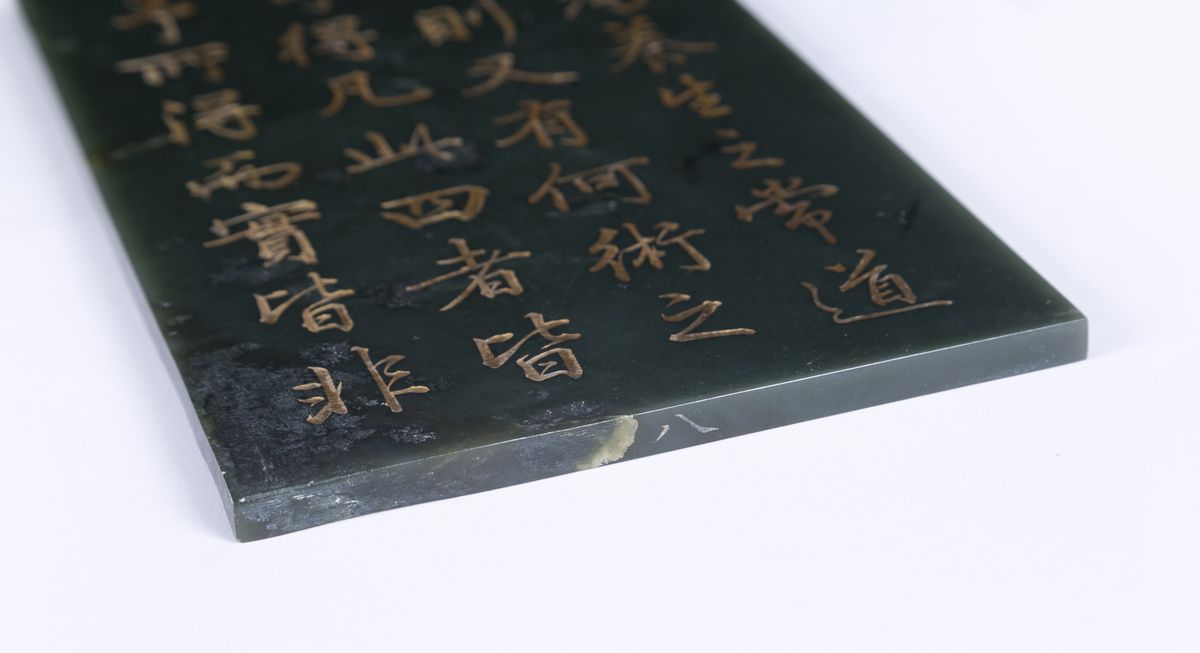 養生之常道
則又有何術之
得凡此四者皆
子所得而實皆非
八